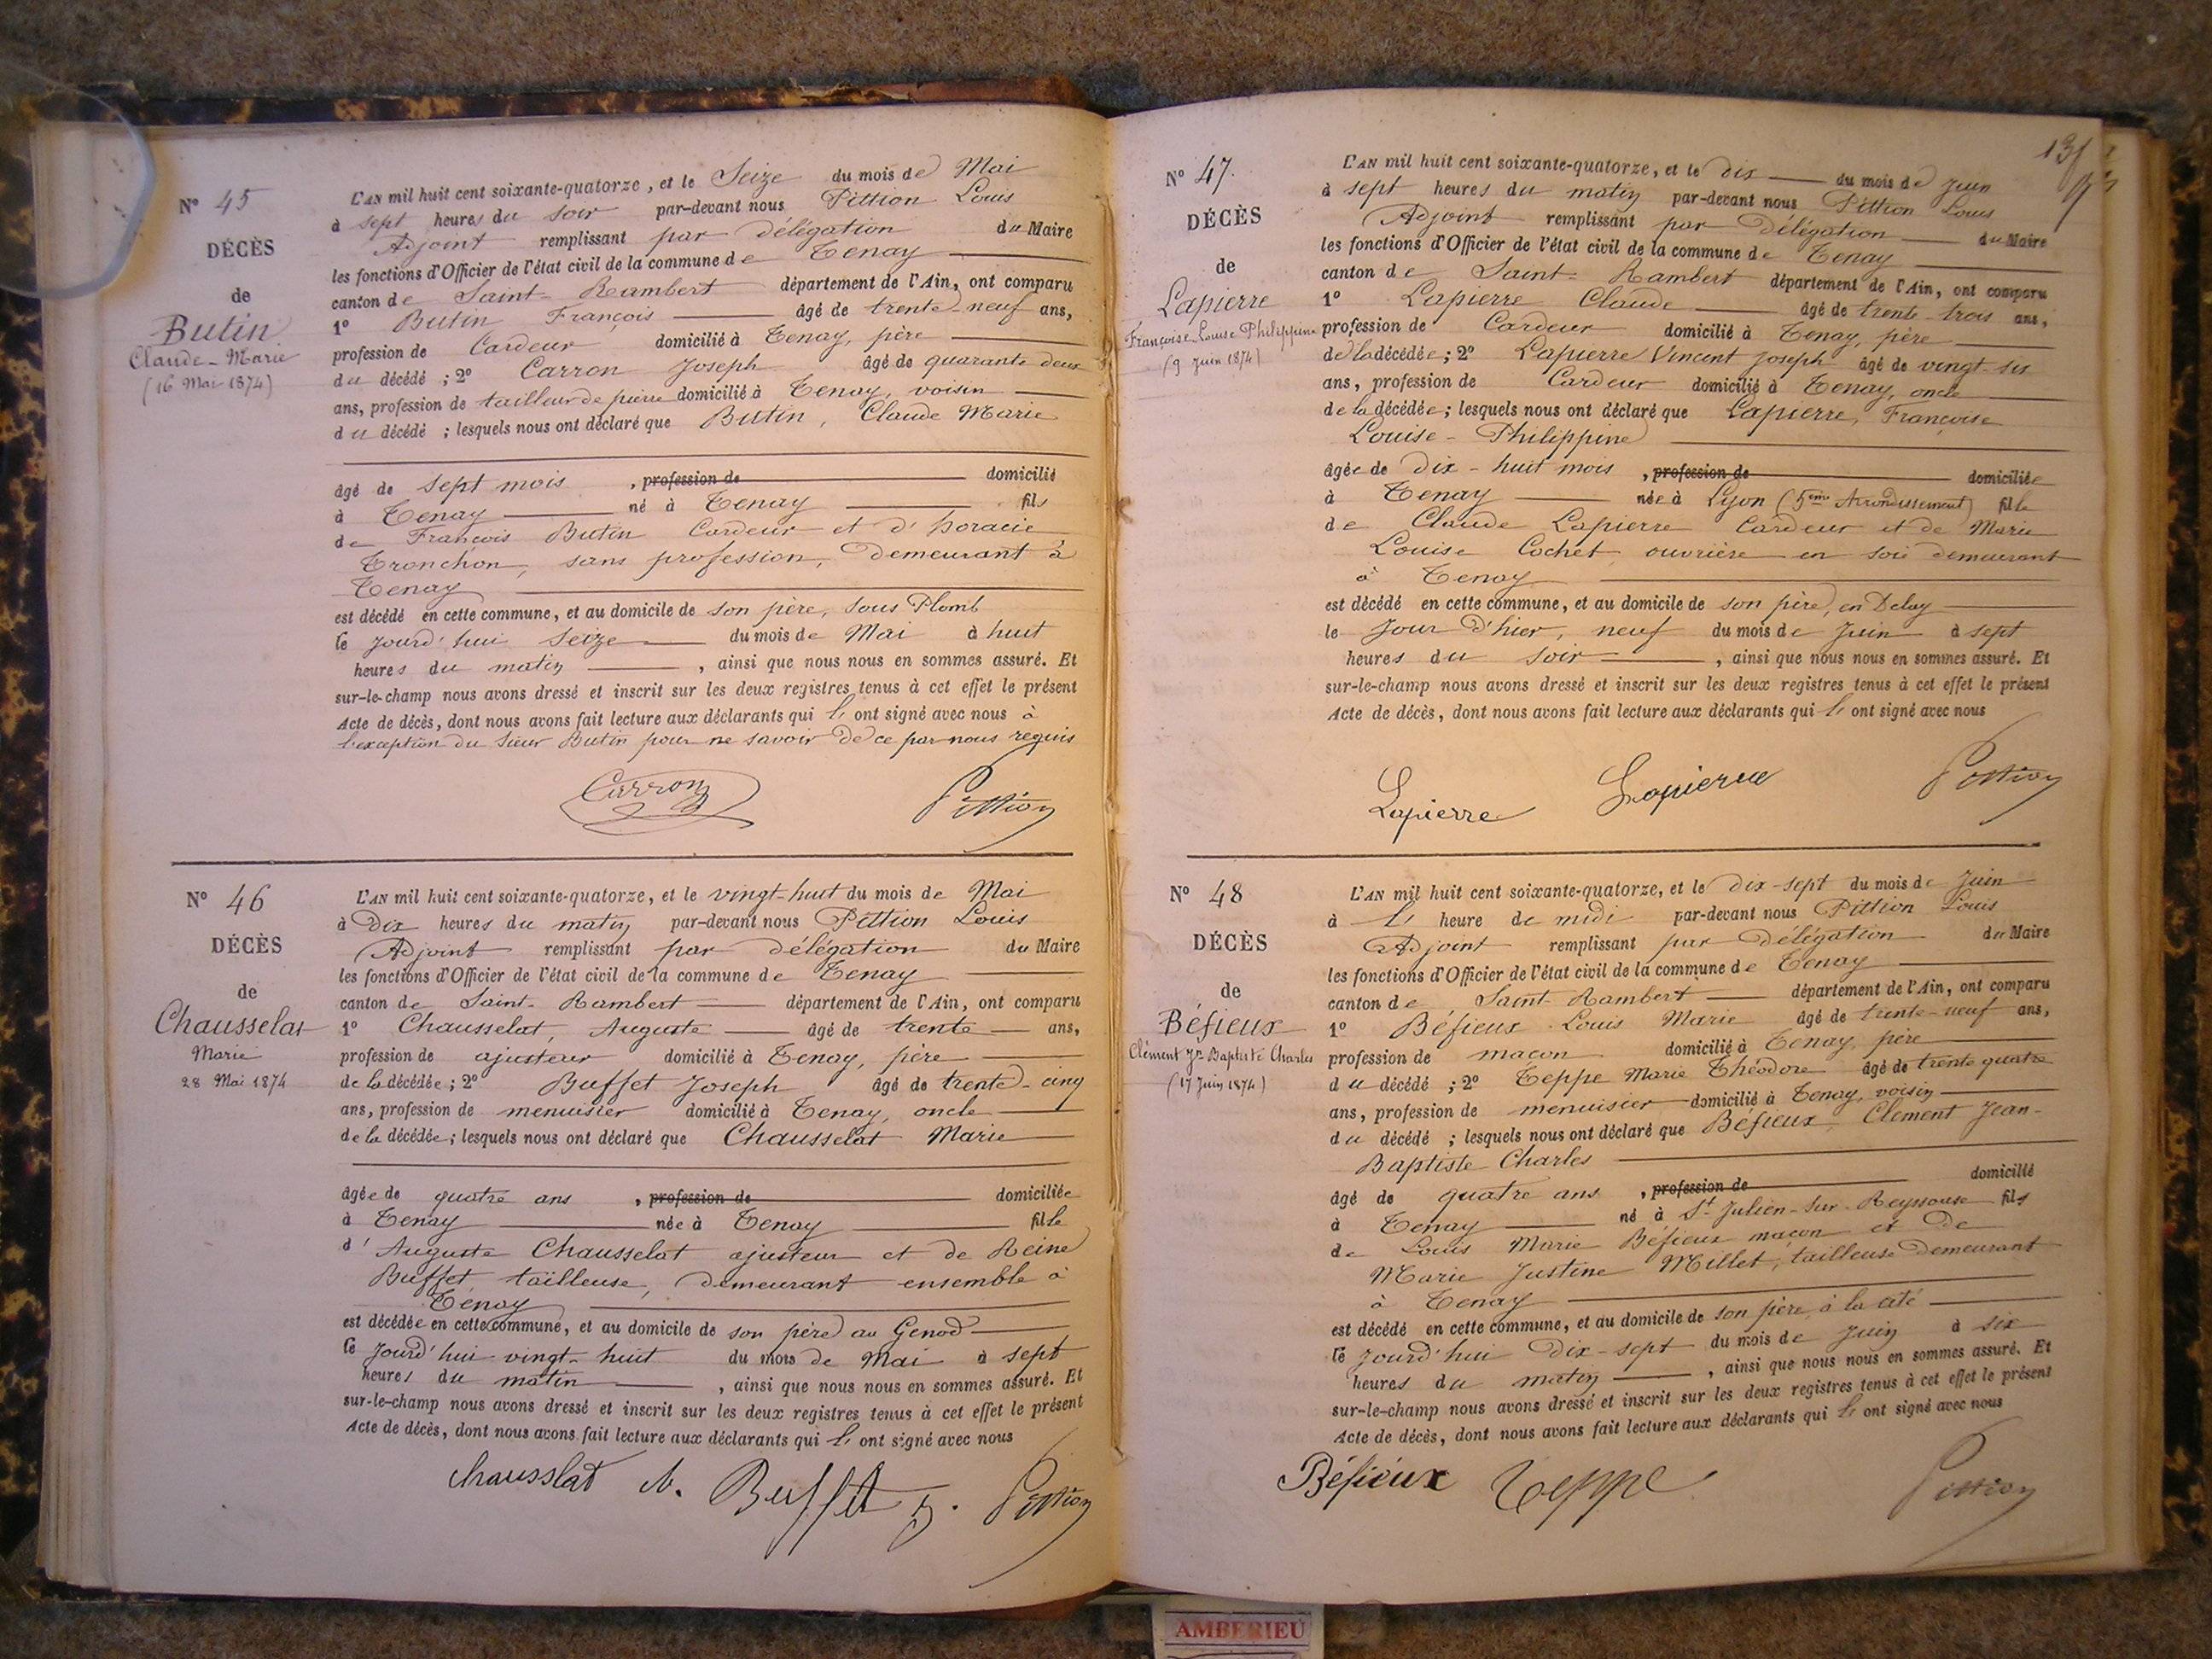 N° 45
DÉCÈS
de
Butin
Claude-Marie
(16 Mai 1874)
L'AN mil huit cent soixante-quatorze, et le Seize du mois de Mai
à sept heures du soir par-devant nous Pittion Louis
Adjoint remplissant par délégation du Maire
les fonctions d'Officier de l'état civil de la commune de Tenay
canton de Saint-Rambert département de l'Ain, ont comparu
1° Butin François âgé de trente-neuf ans,
profession de Cardeur domicilié à Tenay, père
du décédé ; 2° Carron Joseph âgé de quarante deux
ans, profession de tailleur de pierre domicilié à Tenay, voisin
du décédé ; lesquels nous ont déclaré que Butin, Claude Marie
âgé de sept mois , profession de domicilié
à Tenay né à Tenay fils
de François Butin Cardeur et d'horacie
Tronchon, sans profession, demeurant à
Tenay
est décédé en cette commune, et au domicile de son père, sous Plomb
le jourd'hui seize du mois de Mai à huit
heures du matin , ainsi que nous nous en sommes assuré. Et
sur-le-champ nous avons dressé et inscrit sur les deux registres tenus à cet effet le présent
Acte de décès, dont nous avons fait lecture aux déclarants qui l' ont signé avec nous à
l'exception du sieur Butin pour ne savoir de ce par nous requis
Carron Pittion
N° 46
DÉCÈS
de
Chausselat
Marie
28 Mai 1874
L'AN mil huit cent soixante-quatorze, et le vingt-huit du mois de Mai
à Dix heures du matin par-devant nous Pittion Louis
Adjoint remplissant par délégation du Maire
les fonctions d'Officier de l'état civil de la commune de Tenay
canton de Saint-Rambert département de l'Ain, ont comparu
1° Chausselat, Auguste âgé de trente ans,
profession de ajusteur domicilié à Tenay, père
de la décédée ; 2° Buffet Joseph âgé de trente-cinq
ans, profession de menuisier domicilié à Tenay, oncle
de la décédée ; lesquels nous ont déclaré que Chausselat Marie
âgée de quatre ans , profession de domiciliée
à Tenay née à Tenay fille
d'Auguste Chausselat ajusteur et de Reine
Buffet tailleuse, demeurant ensemble à
Tenay
est décédée en cette commune, et au domicile de son père au Genod
le jourd'hui vingt-huit du mois de Mai à sept
heures du matin , ainsi que nous nous en sommes assuré. Et
sur-le-champ nous avons dressé et inscrit sur les deux registres tenus à cet effet le présent
Acte de décès, dont nous avons fait lecture aux déclarants qui l' ont signé avec nous
chausslat A. Buffet J. Pittion
N° 47.
DÉCÈS
de
Lapierre
Françoise Louise Philippine
(9 Juin 1874)
L'AN mil huit cent soixante-quatorze, et le dix du mois de Juin
à sept heures du matin par-devant nous Pittion Louis
Adjoint remplissant par délégation du Maire
les fonctions d'Officier de l'état civil de la commune de Tenay
canton de Saint-Rambert département de l'Ain, ont comparu
1° Lapierre Claude âgé de trente-trois ans,
profession de Cardeur domicilié à Tenay, père
de la décédée ; 2° Lapierre Vincent Joseph âgé de vingt-six
ans, profession de Cardeur domicilié à Tenay, oncle
de la décédée ; lesquels nous ont déclaré que Lapierre, Françoise
Louise-Philippine
âgée de dix-huit mois , profession de domiciliée
à Tenay née à Lyon (5eme Arrondissement) fille
de Claude Lapierre Cardeur et de Marie
Louise Cochet, ouvrière en soie demeurant
à Tenay
est décédé en cette commune, et au domicile de son père, en Delay
le Jour d'hier, neuf du mois de Juin à sept
heures du soir , ainsi que nous nous en sommes assuré. Et
sur-le-champ nous avons dressé et inscrit sur les deux registres tenus à cet effet le présent
Acte de décès, dont nous avons fait lecture aux déclarants qui l' ont signé avec nous
Lapierre Lapierre Pittion
N° 48
DÉCÈS
de
Béfieux
Clément Jn Baptiste Charles
(17 Juin 1874)
L'AN mil huit cent soixante-quatorze, et le dix-sept du mois de Juin
à l' heure de midi par-devant nous Pittion Louis
Adjoint remplissant par délégation du Maire
les fonctions d'Officier de l'état civil de la commune de Tenay
canton de Saint-Rambert département de l'Ain, ont comparu
1° Béfieux Louis Marie âgé de trente-neuf ans,
profession de maçon domicilié à Tenay, père
du décédé ; 2° Teppe Marie Théodore âgé de trente quatre
ans, profession de menuisier domicilié à Tenay, voisin
du décédé ; lesquels nous ont déclaré que Béfieux, Clément Jean-
Baptiste Charles
âgé de quatre ans , profession de domicilié
à Tenay né à St Julien-sur-Reyssouse fils
de Louis Marie Béfieux maçon et de
Marie Justine Millet, tailleuse demeurant
à Tenay
est décédé en cette commune, et au domicile de son père, à la cité
le jourd'hui dix-sept du mois de Juin à six
heures du matin , ainsi que nous nous en sommes assuré. Et
sur-le-champ nous avons dressé et inscrit sur les deux registres tenus à cet effet le présent
Acte de décès, dont nous avons fait lecture aux déclarants qui l' ont signé avec nous
Béfieux Teppe Pittion
AMBERIEU